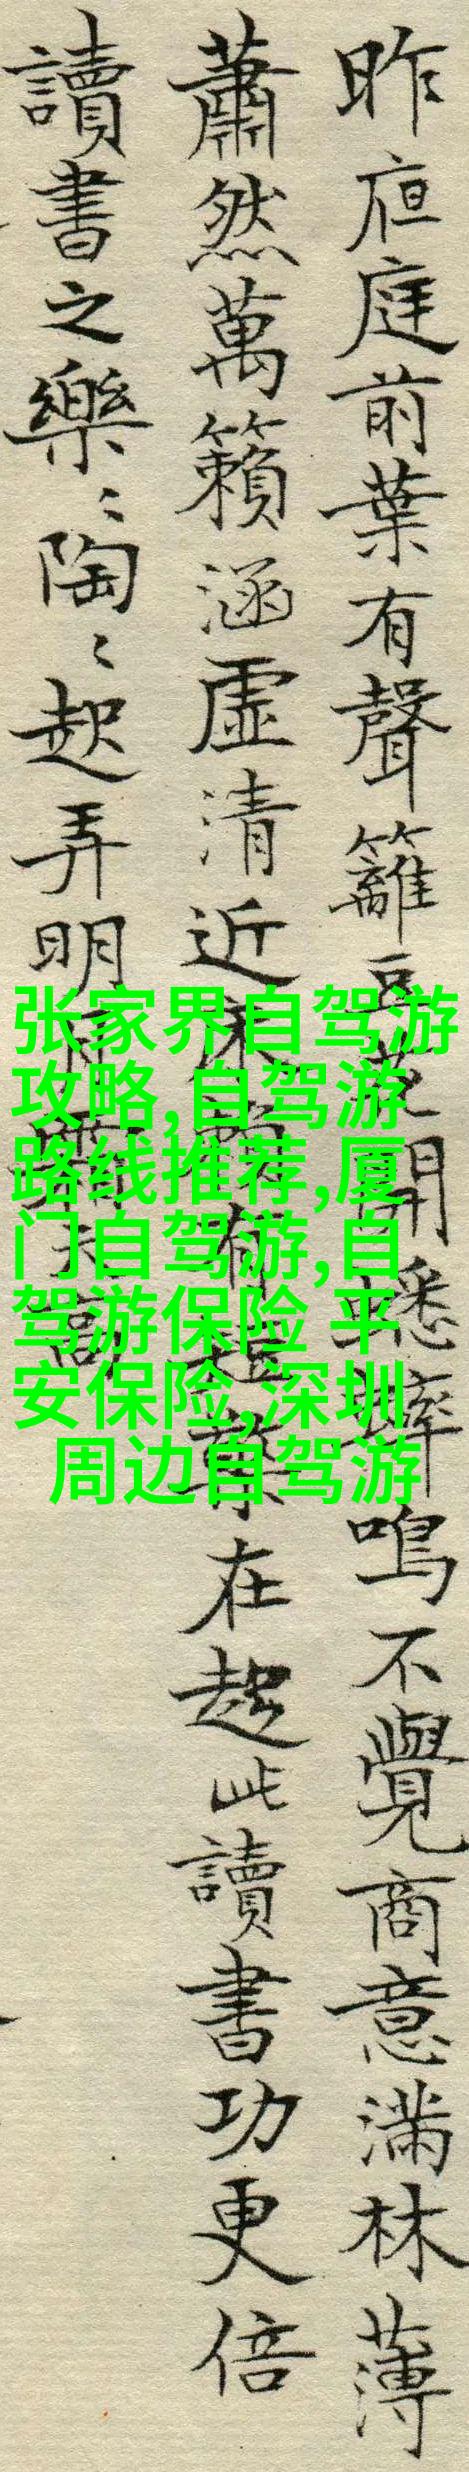 昨亱庭前葉有聲籬豆花開蟋蟀鳴不覺商意滿林薄
蕭然萬籟涵虛清近床賴有短檠在趂此讀書功更倍
讀書之樂〻陶〻起弄明月霜天高
张家界自驾游
攻略,自驾游
路线推荐,厦
门自驾游,自
驾游保险 平
安保险,深圳
周边自驾游